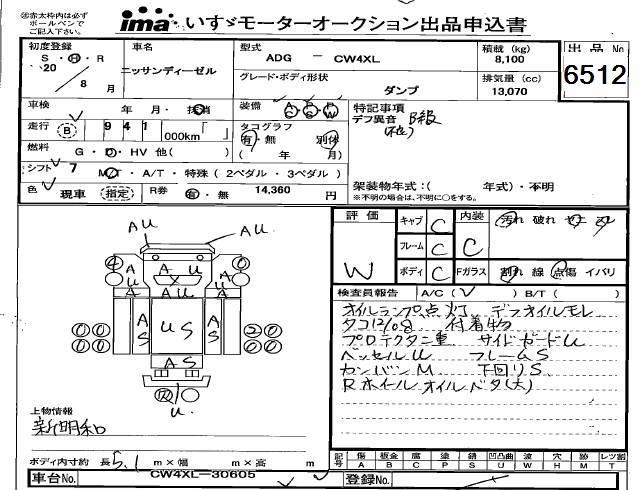 ㊟赤太枠内は必ず
ボールペンで
ご記入下さい。
ima いすゞモーターオークション出品申込書
初度登録
S・H・R
20
8 月
車名
ニッサンディーゼル
型式
ADG － CW4XL
グレード・ボディ形状
ダンプ
積載 (kg)
8,100
排気量 (cc)
13,070
出品No
6512
車検
年 月・抹消
装備
A C ・ P S ・ P W
走行
B 941 000km「 」
タコグラフ
有・無 別体
( 年 月)
燃料
G・D・HV 他( )
シフト 7
M/T・A/T・特殊 ( 2ペダル・3ペダル )
色
現車 指定
R券
有・無
14,360 円
特記事項
デフ異音 B級
架装物年式：( 年式)・不明
※不明の場合は、不明に○をする。
評価
W
キャブ C
フレーム C
ボディ C
内装
C
Fガラス
汚れ 破れ
割れ 線 点傷 イバリ
検査員報告
A/C ( ) B/T ( )
オイルランプ点灯 デフオイルモレ
タコ12/08 付着物
プロテクター重 サイドガードU
ベッセルU フレームS
カンバンM 下回りS
Rホイールオイルベタ(大)
AU AU
4 0
A U A U A U
A A
A S U S A S
0 0 2 0
0 0 0 0
A S
U
上物情報
新明和
ボディ内寸約 長 5.1 m×幅 m×高 m
車台No. CW4XL-30605
登録No.
記号
傷 A
板金 B
腐 C
塗 P
錆 S
凹凸曲 U
波 W
穴 H
跡 M
レツ割 T